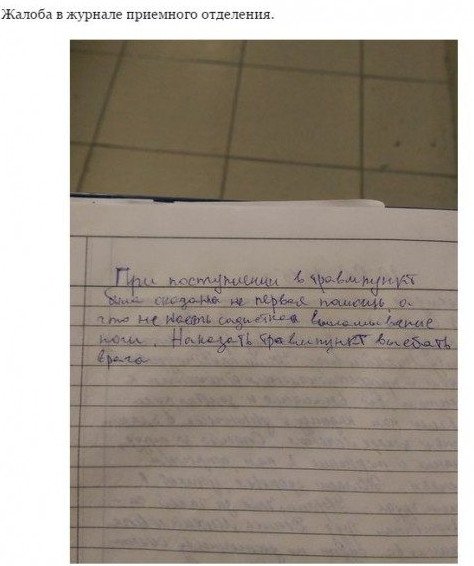 Жалоба в журнале приемного отделения.
При поступлении в травмпункт
была оказана не первая помощь, а
что не жесть садисткое выламывание
ноги. Наказать травмпункт выебать
врача